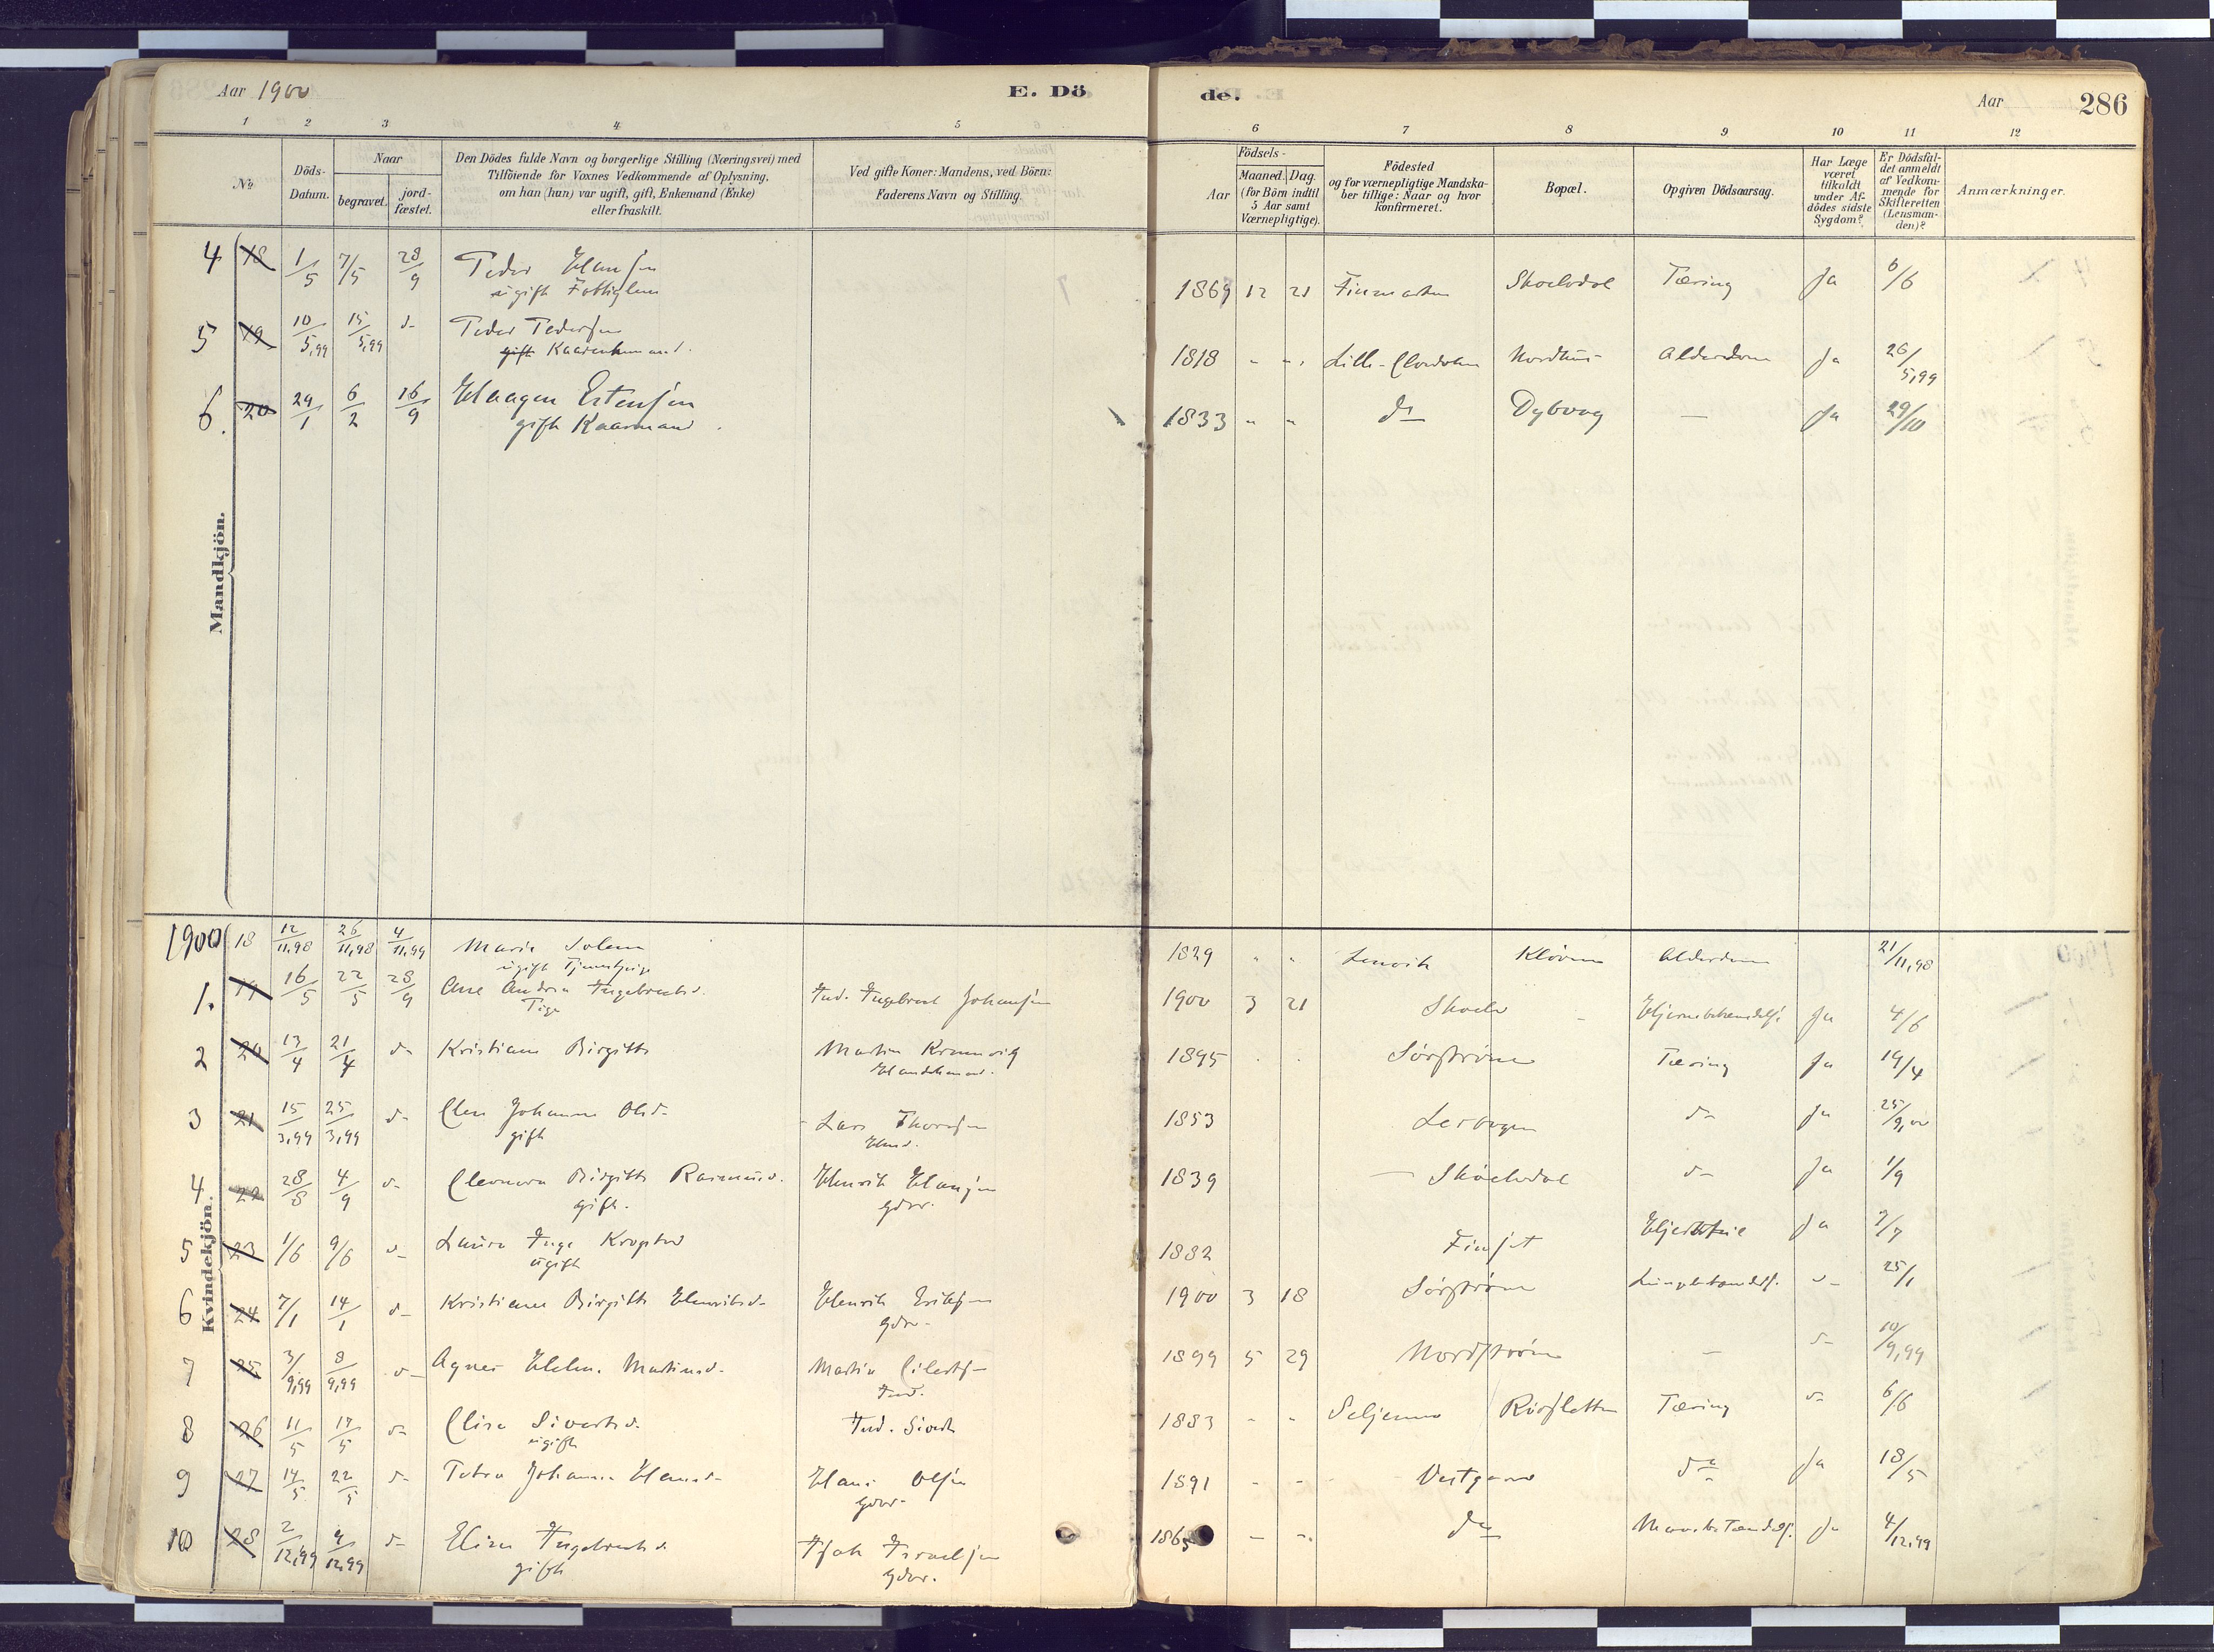 Aar 1900
E. Dö
de.
Aar
286
1 2 3 4 5 6 7 8 9 10 11 12
No
Döds-Datum.
Naar
begravet.
jord-fæstet.
Den Dödes fulde Navn og borgerlige Stilling (Næringsvei) med
Tilföiende for Voxnes Vedkommende af Oplysning,
om han (hun) var ugift, gift, Enkemand (Enke)
eller fraskilt.
Ved gifte Koner: Mandens, ved Börn:
Faderens Navn og Stilling.
Födsels-
Aar
Maaned. Dag.
(for Börn indtil
5 Aar samt
Værnepligtige).
Födested
og for værnepligtige Mandska-
ber tillige: Naar og hvor
konfirmeret.
Bopæl.
Opgiven Dödsaarsag.
Har Læge
været
tilkaldt
under Af-
dödes sidste
Sygdom?
Er Dödsfal-
det anmeldt
af Vedkom-
mende for
Skifteretten
(Lensman-
den)?
Anmærkninger.
Mandkjön.
4 18 1/5 7/5 28/9 Peder Hansen 1869 12 21 Finmarken Skoelvdal Tæring Ja 6/6
ugift Fattiglem
5 19 10/5,99 15/5,99 d- Peder Pedersen 1818 - - Nordhus Alderdom Ja 26/5,99
gift Kaarenkemand.
6. 20 29/1 6/2 16/9 Haagen Estensen 1833 " " do Dybvaag — Ja 29/10
gift Kaarmand.
Kvindekjön.
1900 18 12/11,98 26/11,98 4/11,99 Marie Solem 1829 " " Lenvik Klöven Alderdom 21/11,98
ugift
1. 19 16/5 22/5 28/9 Ane Andrea Ingebrechtsd. Ind. Ingebret Johansen 1900 3 21 Skoelv - Ja 4/6
Pige
2 20 13/4 21/4 d- Kristiane Birgitte Martin 1895 Sörströmen Tæring Ja 19/4
Handelsmand.
3 21 15/3,99 25/3,99 d- Elen Johanna Olsd. Lars Thoresen 1853 d- Ja 25/9,00
gift
4 22 28/8 4/9 d- Eleonora Birgitte Rasmusd. Henrik Hansen 1839 — Skoelvdal d- Ja 1/9
gift. gdbr.
5 23 1/6 9/6 d- Laura Inga 1882 Finset Ja 7/7
ugift
6 24 7/1 14/1 d- Kristiane Birgitte Henriksd. Henrik Eriksen 1900 3 18 Sörströmen Lungebetændelse d- 25/1
gdbr.
7 25 3/9,99 8/9,99 d- Agnes Helen. Martinsd. Martin Eilertsen 1899 5 29 Nordströmen — d- 10/9,99
Ind.
8 26 11/5 17/5 d- Elise Sivertsd. Ind. Sivert 1883 - - Seljenes Tæring d- 6/6
ugift
9 27 14/5 22/5 d- Petra Johanna Hansd. Hans Olsen 1891 - - Vestgaard do Ja 18/5
gdbr.
10 28 2/12,99 9/12,99 d- Elisa Ingebretsd. Isak Israelsen 1865 - - do Ja 4/12,99
gift gdbr.